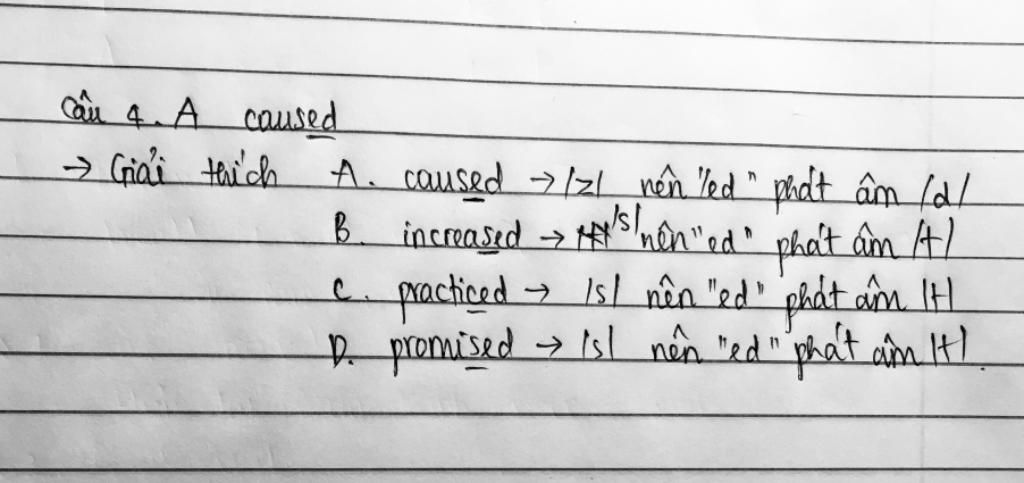 Câu 4. A caused
→ Giải thích A. caused → /z/ nên "ed" phát âm /d/
B. increased → /s/ nên "ed" phát âm /t/
C. practiced → /s/ nên "ed" phát âm /t/
D. promised → /s/ nên "ed" phát âm /t/.